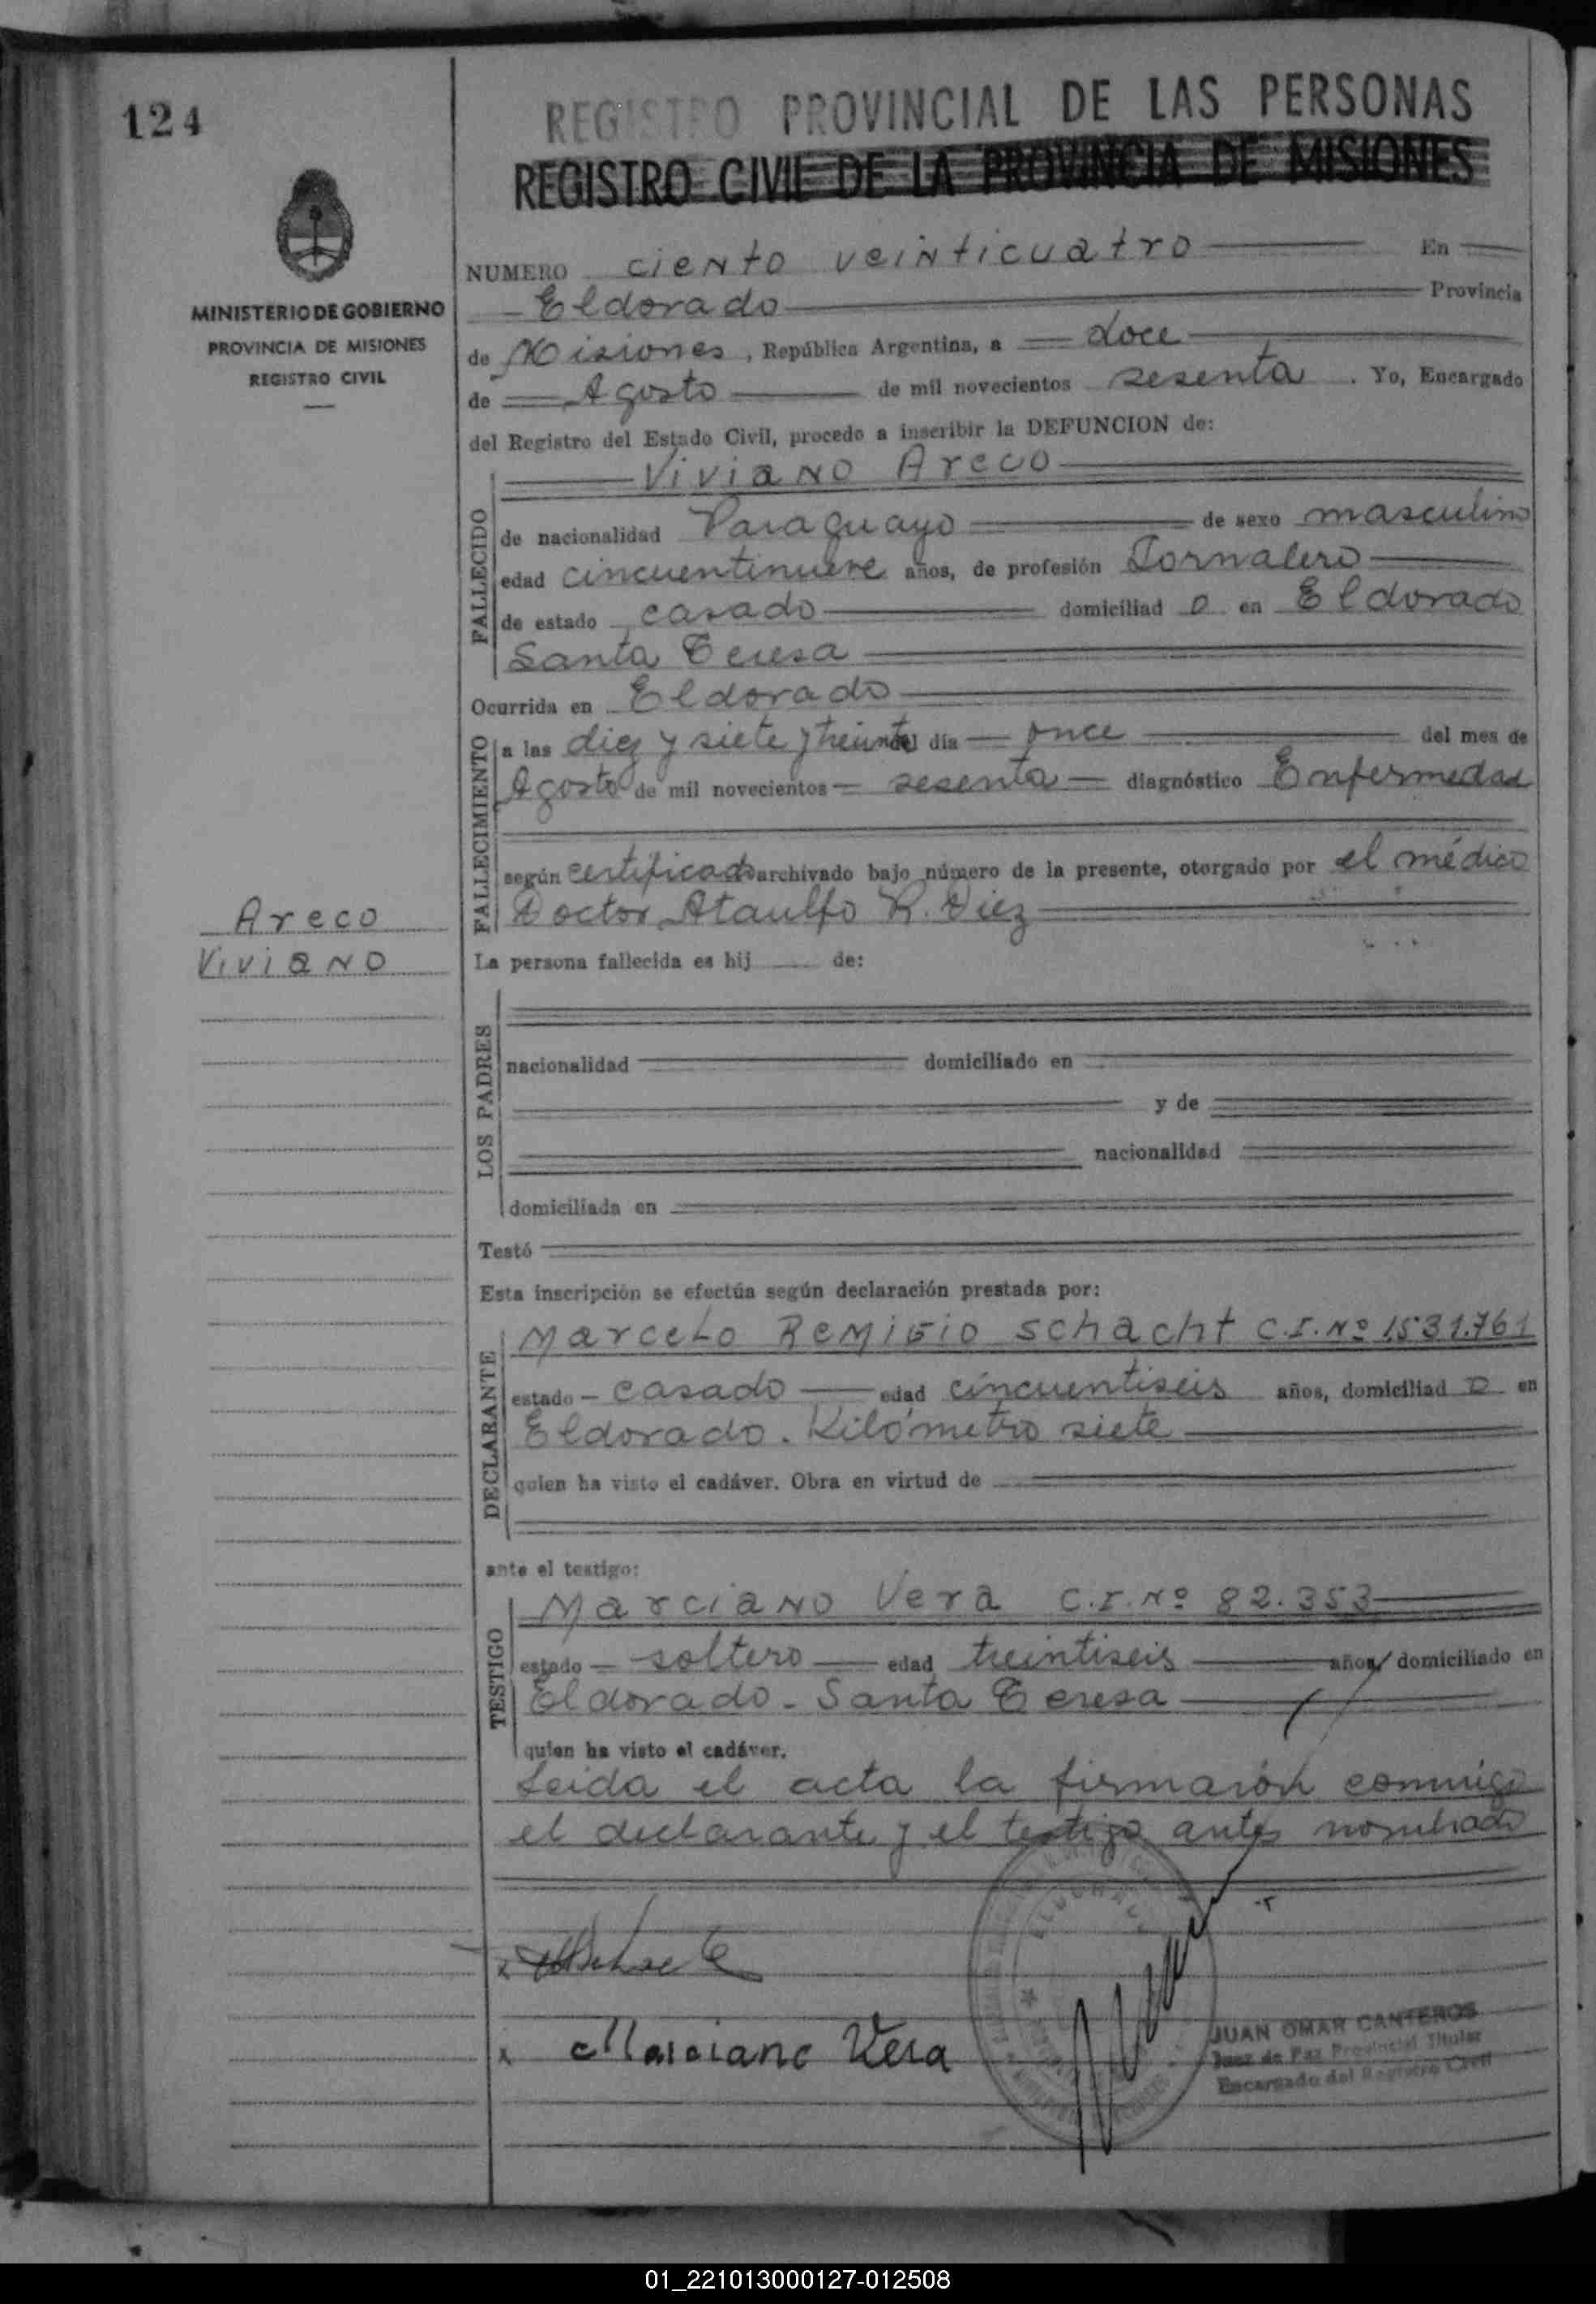 124
REGISTRO PROVINCIAL DE LAS PERSONAS
REGISTRO CIVIL DE LA PROVINCIA DE MISIONES
MINISTERIO DE GOBIERNO
PROVINCIA DE MISIONES
REGISTRO CIVIL
NUMERO ciento veinticuatro En
Eldorado Provincia
de Misiones, República Argentina, a doce
de Agosto de mil novecientos sesenta. Yo, Encargado
del Registro del Estado Civil, procedo a inscribir la DEFUNCION de:
Viviano Areco
FALLECIDO
de nacionalidad Paraguayo de sexo masculino
edad cincuentinueve años, de profesión Jornalero
de estado casado domiciliad o en Eldorado
Santa Teresa
Ocurrida en Eldorado
FALLECIMIENTO
a las diez y siete y treinta del día once del mes de
Agosto de mil novecientos sesenta diagnóstico Enfermedad
según certificado archivado bajo número de la presente, otorgado por el médico
Doctor Ataulfo R. Diez
Areco
Viviano
La persona fallecida es hij de:
LOS PADRES
nacionalidad domiciliado en
y de
nacionalidad
domiciliada en
Testó
Esta inscripción se efectúa según declaración prestada por:
DECLARANTE
Marcelo Remigio Schacht C.I. Nº 1.531.761
estado casado edad cincuentiseis años, domiciliad o en
Eldorado. Kilómetro siete
quien ha visto el cadáver. Obra en virtud de
ante el testigo:
TESTIGO
Marciano Vera C.I. Nº 82.353
estado soltero edad treintiseis años, domiciliado en
Eldorado - Santa Teresa
quien ha visto el cadáver.
Leida el acta la firmarón conmigo
el declarante y el testigo antes nombrado
x
x Marciano Vera
JUAN OMAR CANTEROS
Juez de Paz Provincial Titular
Encargado del Registro Civil
01_221013000127-012508